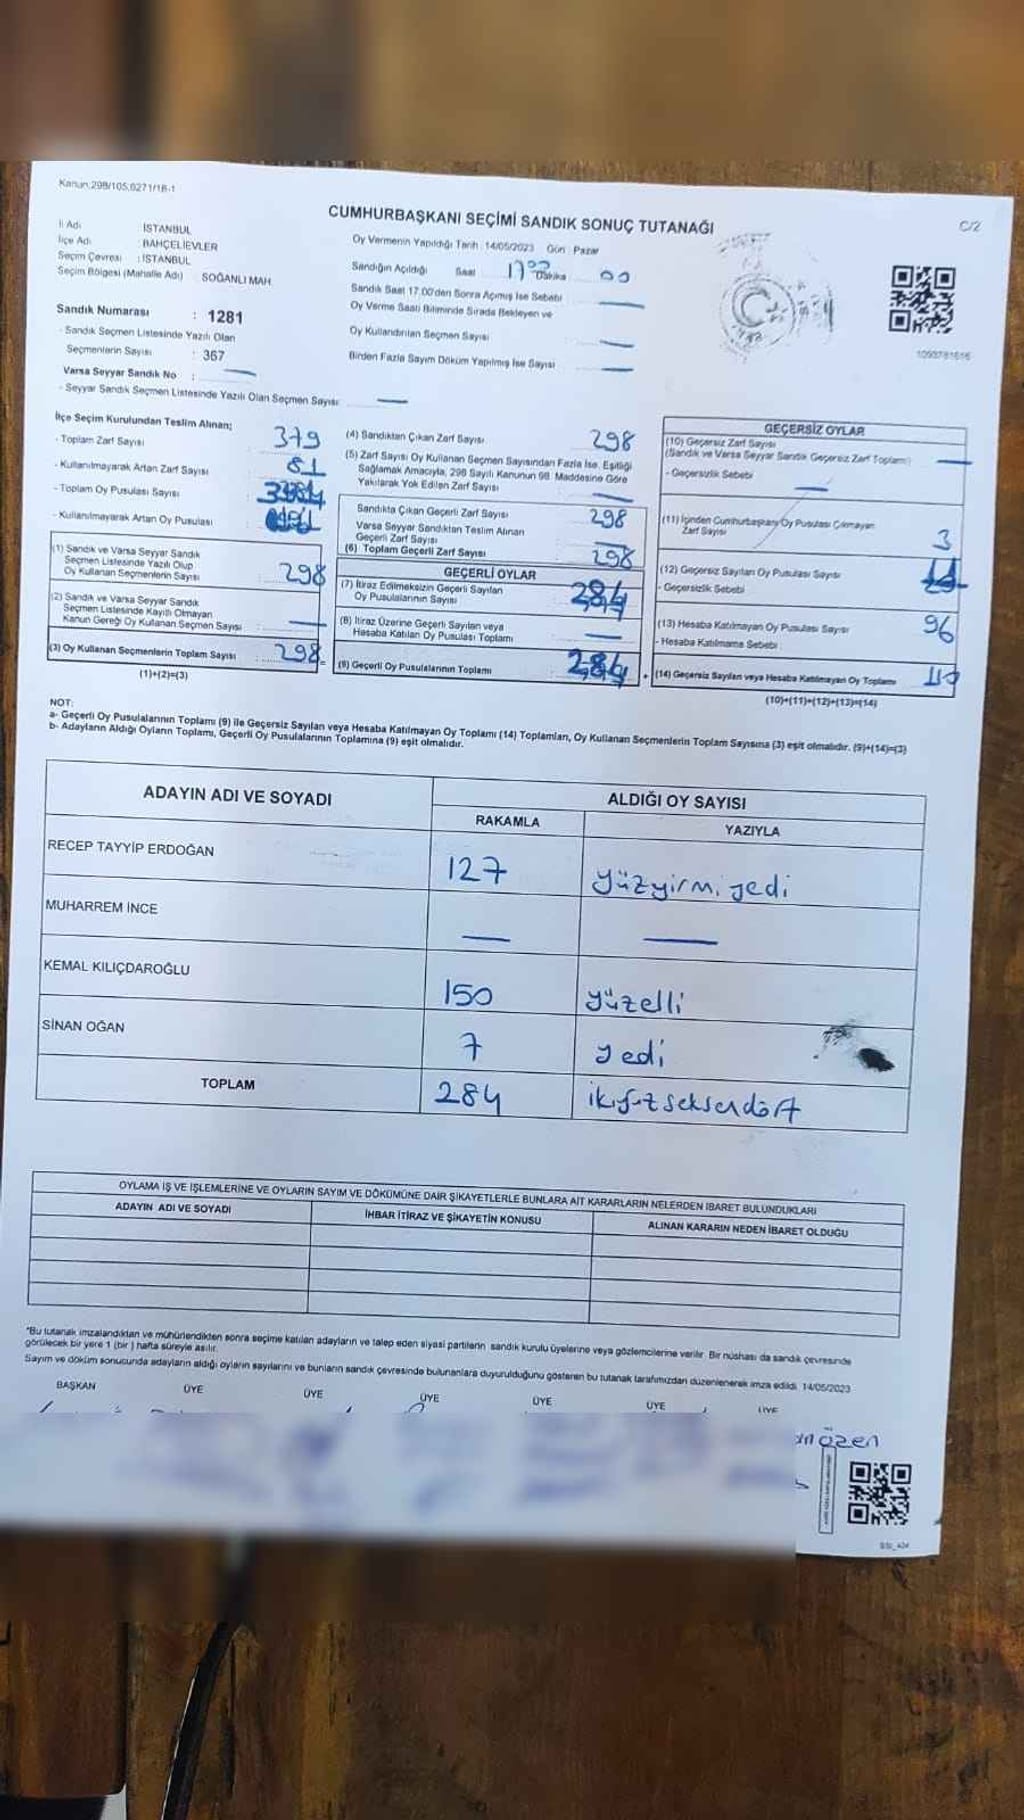 Kanun:298/105,0271/16-1
CUMHURBAŞKANI SEÇİMİ SANDIK SONUÇ TUTANAĞI
C/2
İl Adı İSTANBUL
İlçe Adı : BAHÇELİEVLER
Seçim Çevresi : İSTANBUL
Seçim Bölgesi (Mahalle Adı) SOĞANLI MAH
Oy Vermenin Yapıldığı Tarih : 14/05/2023 Gün : Pazar
Sandığın Açıldığı Saat 17 Dakika 00
Sandık Saat 17:00'den Sonra Açmış İse Sebebi —
Oy Verme Saati Bitiminde Sırada Bekleyen ve
Oy Kullandırılan Seçmen Sayısı —
Birden Fazla Sayım Döküm Yapılmış İse Sayısı —
1093781616
Sandık Numarası : 1281
- Sandık Seçmen Listesinde Yazılı Olan
Seçmenlerin Sayısı : 367
Varsa Seyyar Sandık No : —
- Seyyar Sandık Seçmen Listesinde Yazılı Olan Seçmen Sayısı: —
İlçe Seçim Kurulundan Teslim Alınan;
- Toplam Zarf Sayısı 379
- Kullanılmayarak Artan Zarf Sayısı 81
- Toplam Oy Pusulası Sayısı
- Kullanılmayarak Artan Oy Pusulası
(1) Sandık ve Varsa Seyyar Sandık
Seçmen Listesinde Yazılı Olup
Oy Kullanan Seçmenlerin Sayısı 298
(2) Sandık ve Varsa Seyyar Sandık
Seçmen Listesinde Kayıtlı Olmayan
Kanun Gereği Oy Kullanan Seçmen Sayısı —
(3) Oy Kullanan Seçmenlerin Toplam Sayısı 298
(1)+(2)=(3)
(4) Sandıktan Çıkan Zarf Sayısı 298
(5) Zarf Sayısı Oy Kullanan Seçmen Sayısından Fazla İse, Eşitliği
Sağlamak Amacıyla, 298 Sayılı Kanunun 98. Maddesine Göre
Yakılarak Yok Edilen Zarf Sayısı —
Sandıkta Çıkan Geçerli Zarf Sayısı 298
Varsa Seyyar Sandıktan Teslim Alınan
Geçerli Zarf Sayısı —
(6) Toplam Geçerli Zarf Sayısı 298
GEÇERLİ OYLAR
(7) İtiraz Edilmeksizin Geçerli Sayılan
Oy Pusulalarının Sayısı 284
(8) İtiraz Üzerine Geçerli Sayılan veya
Hesaba Katılan Oy Pusulası Toplamı —
(9) Geçerli Oy Pusulalarının Toplamı 284
GEÇERSİZ OYLAR
(10) Geçersiz Zarf Sayısı
(Sandık ve Varsa Seyyar Sandık Geçersiz Zarf Toplamı) —
- Geçersizlik Sebebi —
(11) İçinden Cumhurbaşkanı Oy Pusulası Çıkmayan
Zarf Sayısı 3
(12) Geçersiz Sayılan Oy Pusulası Sayısı
- Geçersizlik Sebebi
(13) Hesaba Katılmayan Oy Pusulası Sayısı 96
- Hesaba Katılmama Sebebi
(14) Geçersiz Sayılan veya Hesaba Katılmayan Oy Toplamı
(10)+(11)+(12)+(13)=(14)
NOT:
a- Geçerli Oy Pusulalarının Toplamı (9) ile Geçersiz Sayılan veya Hesaba Katılmayan Oy Toplamı (14) Toplamları, Oy Kullanan Seçmenlerin Toplam Sayısına (3) eşit olmalıdır. (9)+(14)=(3)
b- Adayların Aldığı Oyların Toplamı, Geçerli Oy Pusulalarının Toplamına (9) eşit olmalıdır.
ADAYIN ADI VE SOYADI
ALDIĞI OY SAYISI
RAKAMLA YAZIYLA
RECEP TAYYİP ERDOĞAN 127 yüzyirmi yedi
MUHARREM İNCE — —
KEMAL KILIÇDAROĞLU 150 yüzelli
SİNAN OĞAN 7 yedi
TOPLAM 284 ikiyüzseksendört
OYLAMA İŞ VE İŞLEMLERİNE VE OYLARIN SAYIM VE DÖKÜMÜNE DAİR ŞİKAYETLERLE BUNLARA AİT KARARLARIN NELERDEN İBARET BULUNDUKLARI
ADAYIN ADI VE SOYADI İHBAR İTİRAZ VE ŞİKAYETİN KONUSU ALINAN KARARIN NEDEN İBARET OLDUĞU
*Bu tutanak imzalandıktan ve mühürlendikten sonra seçime katılan adayların ve talep eden siyasi partilerin sandık kurulu üyelerine veya gözlemcilerine verilir. Bir nüshası da sandık çevresinde
görülecek bir yere 1 (bir) hafta süreyle asılır.
Sayım ve döküm sonucunda adayların aldığı oyların sayılarını ve bunların sandık çevresinde bulunanlara duyurulduğunu gösteren bu tutanak tarafımızdan düzenlenerek imza edildi. 14/05/2023
BAŞKAN ÜYE ÜYE ÜYE ÜYE ÜYE ÜYE
özen